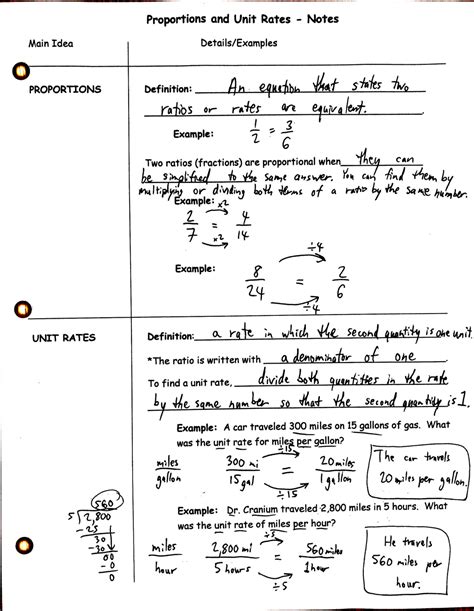 Proportions and Unit Rates - Notes
Main Idea Details/Examples
PROPORTIONS Definition: An equation that states two
ratios or rates are equivalent.
Example: 1/2 = 3/6
Two ratios (fractions) are proportional when they can
be simplified to the same answer. You can find them by
multiplying or dividing both terms of a ratio by the same number.
Example: x2
2/7 = 4/14
x2
÷4
Example: 8/24 = 2/6
÷4
UNIT RATES Definition: a rate in which the second quantity is one unit.
*The ratio is written with a denominator of one
To find a unit rate, divide both quantities in the rate
by the same number so that the second quantity is 1.
Example: A car traveled 300 miles on 15 gallons of gas. What
was the unit rate for miles per gallon?
÷15
miles/gallon 300 mi/15 gal = 20 miles/1 gallon
÷15
The car travels
20 miles per gallon.
Example: Dr. Cranium traveled 2,800 miles in 5 hours. What
was the unit rate of miles per hour?
÷5
miles/hour 2,800 mi/5 hours = 560 miles/1 hour
÷5
He travels
560 miles per
hour.
560
5 2,800
-25
30
-30
00
-0
0